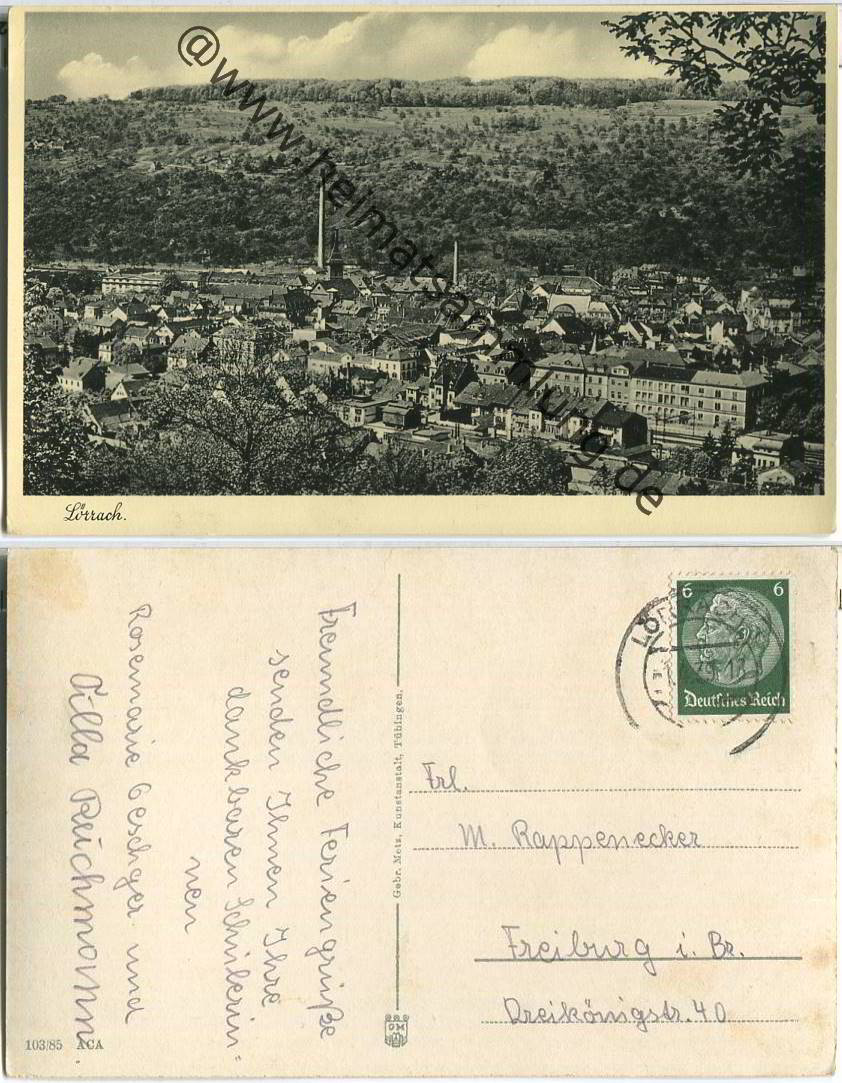 @www.heimatsammlung.de
Lörrach.
Freundliche Feriengrüße
senden Ihnen Ihre
dankbaren Schülerin=
nen
Rosemarie Geschger und
Tilla Reichmann.
Gebr. Metz, Kunstanstalt, Tübingen.
GM
103/85 ACA
6 6
Deutsches Reich
Frl.
M. Rappenecker
Freiburg i. Br.
Dreikönigstr. 40